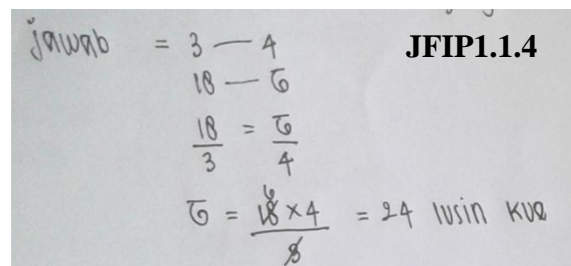 jawab = 3 — 4
JFIP1.1.4
18 — ច
18/3 = ច/4
ច = 18 6 × 4 / 3 = 24 lusin kue